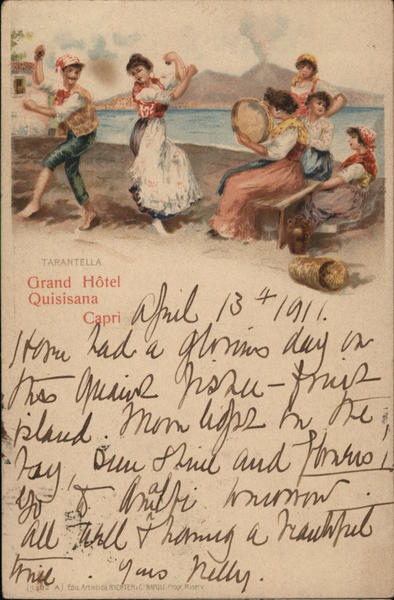 TARANTELLA
Grand Hôtel
Quisisana
Capri
April 13th 1911.
Have had a glorious day on
this quaint fisher-fruit
island. Moon light on the
bay, Sun Shine and flowers!
Go to Amalfi tomorrow.
All well & having a beautiful
time. Yours Nelly.
A) Edit. Artistica RICHTER & C. NAPOLI Propr. Riserv.